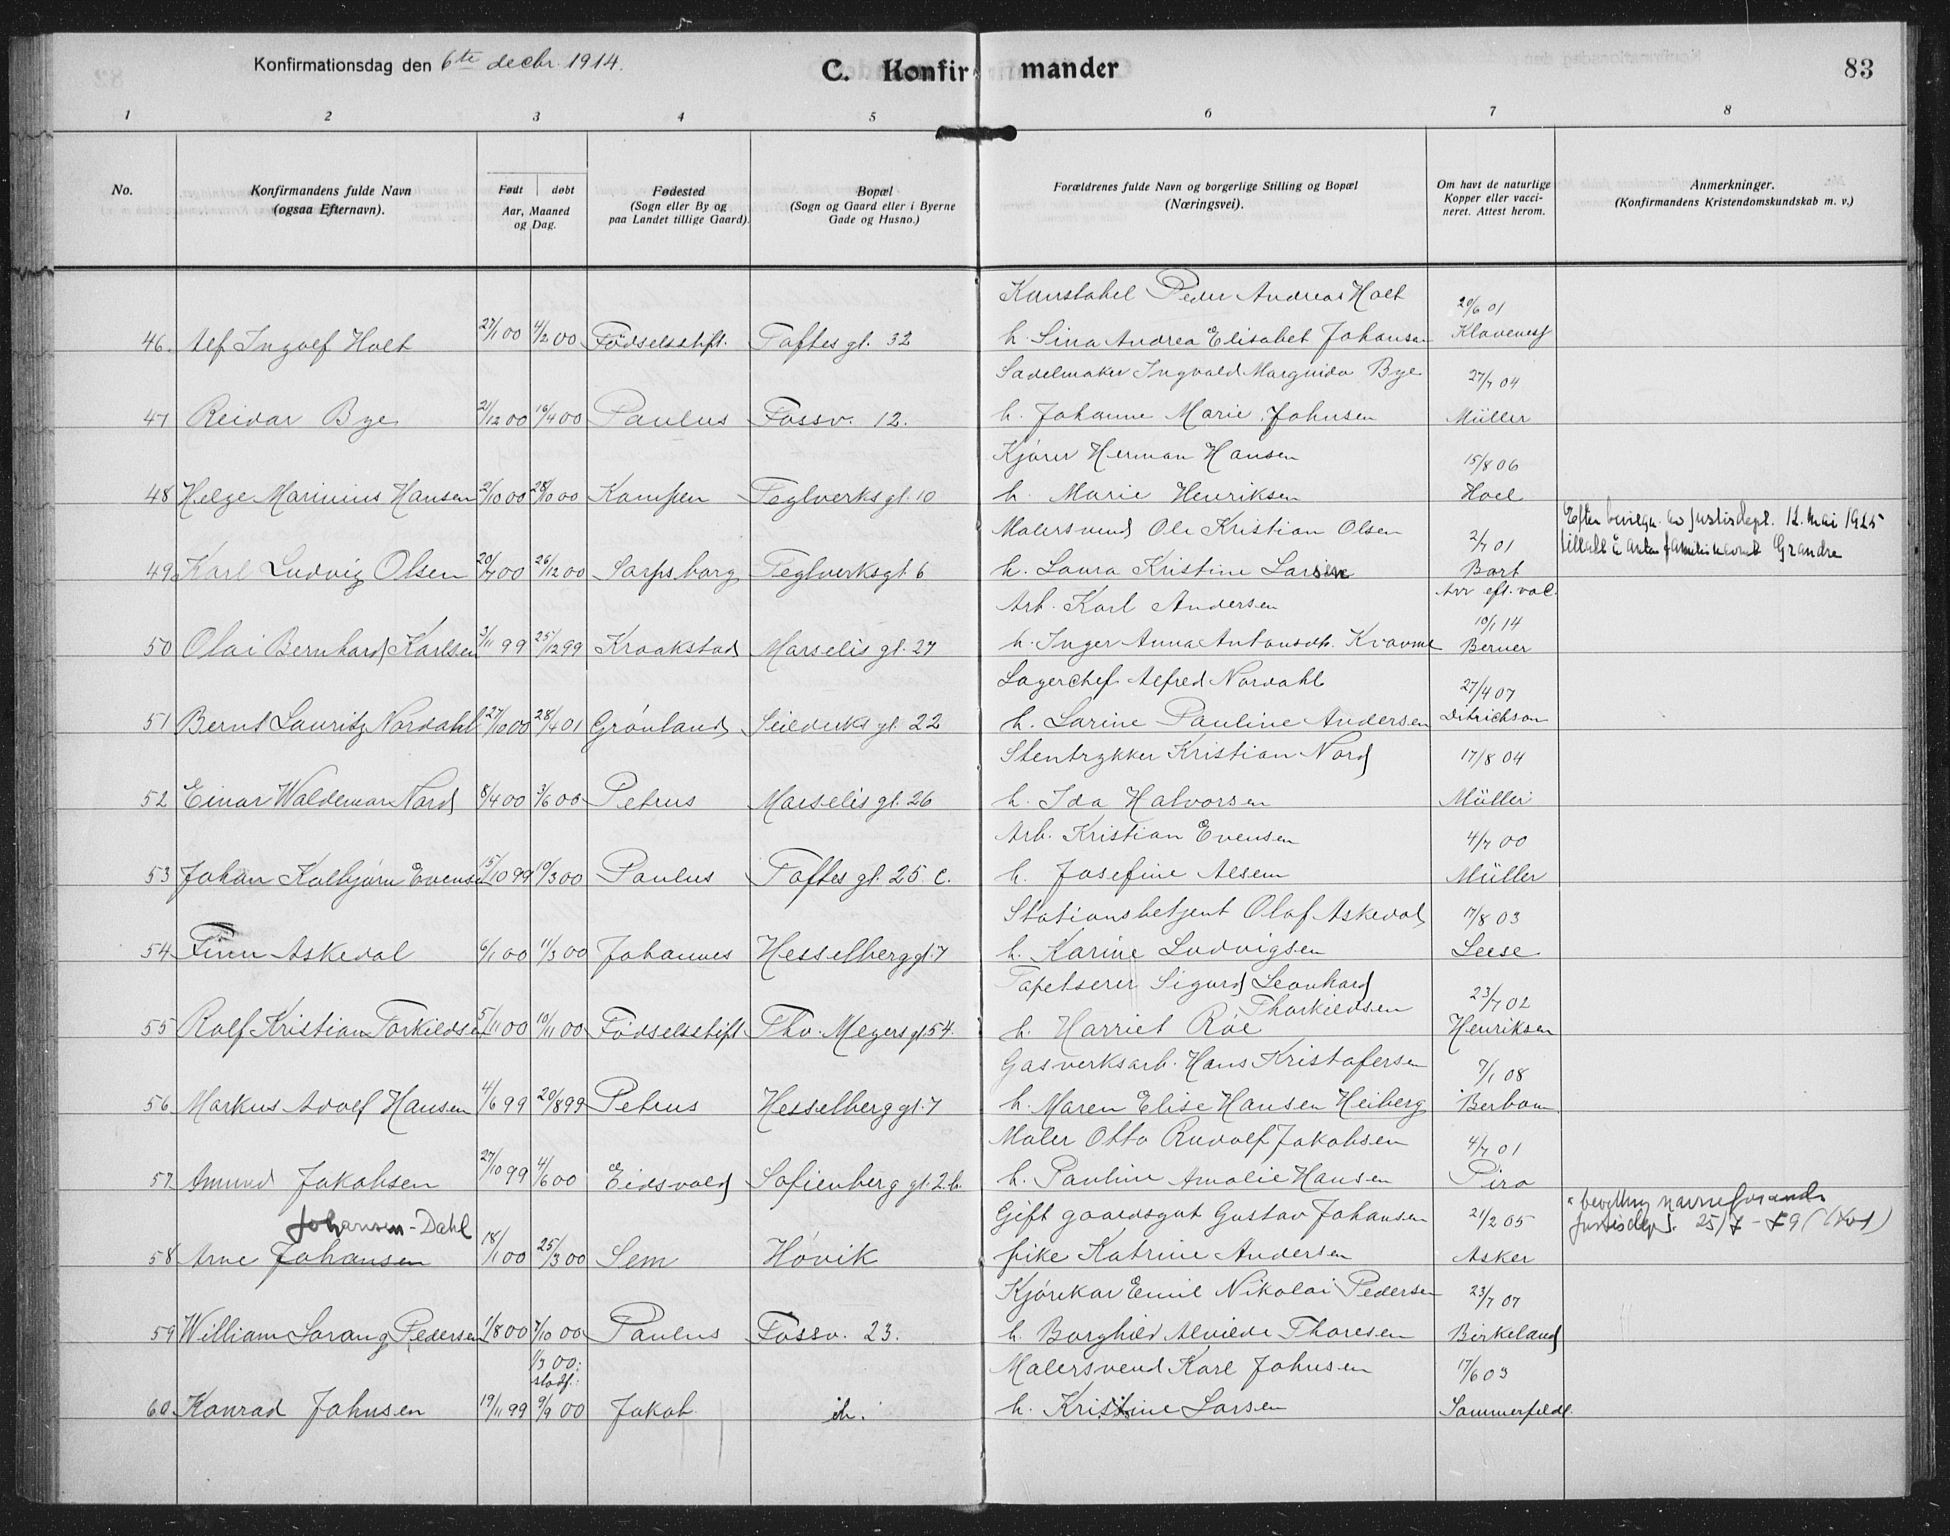 Konfirmationsdag den 6te decbr. 1914.
C. Konfirmander
83
1 2 3 4 5 6 7 8
No.
Konfirmandens fulde Navn
(ogsaa Efternavn).
Født | døbt
Aar, Maaned
og Dag.
Fødested
(Sogn eller By og
paa Landet tillige Gaard).
Bopæl
(Sogn og Gaard eller i Byerne
Gade og Husno.)
Forældrenes fulde Navn og borgerlige Stilling og Bopæl
(Næringsvei).
Om havt de naturlige
Kopper eller vacci-
neret. Attest herom.
Anmerkninger.
(Konfirmandens Kristendomskundskab m. v.)
Konstabel Peder Andreas Holt 20/6 01
46. Alf Ingolf Holt 27/1 00 4/2 00 Födselsstift. Toftes gt. 32 h. Lina Andrea Elisabet Johansen Klaveness
Sadelmaker Ingvald Marguido Bye 27/7 04
47 Reidar Bye 21/12 00 16/4 00 Paulus Fossv. 12. h. Johanne Marie Johnsen Müller
Kjører Herman Hansen 15/8 06
48 Helge Marinius Hansen 2/10 00 28/10 00 Kampen Teglverksgt. 10 h. Marie Henriksen Hoel
Malersvend Ole Kristian Olsen 2/7 01 Efter bevilgn. av justisdept. 12. mai 1925
tillatt å anta familienavnet Grandre
49 Karl Ludvig Olsen 20/7 00 26/12 00 Sarpsborg Teglverksgt 6 h. Laura Kristine Larsen Bort
Arb. Karl Andersen Arr eft. vac.
10/1 14
50 Olai Bernhard Karlsen 3/11 99 25/12 99 Kraakstad Marselis gt. 27 h. Inger Anna Antonsdtr. Kvavme Berner
Lagerchef Alfred Nordahl 27/4 07
51 Bernt Lauritz Nordahl 27/10 00 28/4 01 Grönland Seilduks gt. 22 h. Larine Pauline Andersen Ditrichson
Stentrykker Kristian Nord 17/8 04
52 Einar Waldemar Nord 8/4 00 3/6 00 Petrus Marselis gt. 26 h. Ida Halvorsen Müller
Arb. Kristian Evensen 4/7 00
53 Johan Kolbjørn Evensen 15/10 99 10/3 00 Paulus Toftes gt. 25 c. h. Josefine Alsem Müller
Stationsbetjent Olaf Askedal 17/8 03
54 Finn Askedal 6/1 00 11/3 00 Johannes Hesselberg gt. 7 h. Karine Ludvigsen Leese
Tapetserer Sigurd Leonhard
Thorkildsen 23/7 02
55 Rolf Kristian Torkildsen 5/11 00 10/11 00 Födselsstift Thv. Meyers gt 54. h. Harriet Röe Henriksen
Gasverksarb. Hans Kristofersen 7/1 08
56 Markus Adolf Hansen 4/6 99 20/8 99 Petrus Hesselberg gt. 7 h. Maren Elise Hansen Heiberg Berbom
Maler Otto Rudolf Jakobsen 4/7 01
57 Amund Jakobsen 27/10 99 4/6 00 Eidsvold Sofienberg gt. 2.b. h. Pauline Amalie Hansen Piro
Johansen-Dahl
Gift gaardsgut Gustav Johansen 21/2 05
58 Arne Johansen 18/1 00 25/3 00 Sem Høvik pike Katrine Andersen Asker
Justisdep. 25/7
Kjørekar Emil Nikolai Pedersen 23/7 07
59 William Sarang Pedersen 1/8 00 7/10 00 Paulus Fossv. 23. h. Borghild Alvilde Thoresen Birkeland
1/3 00:
stadf.:
Malersvend Karl Johnsen 17/6 03
60 Konrad Johnsen 19/11 99 9/9 00 Jakob ib. h. Kristine Larsen Sommerfeldt.